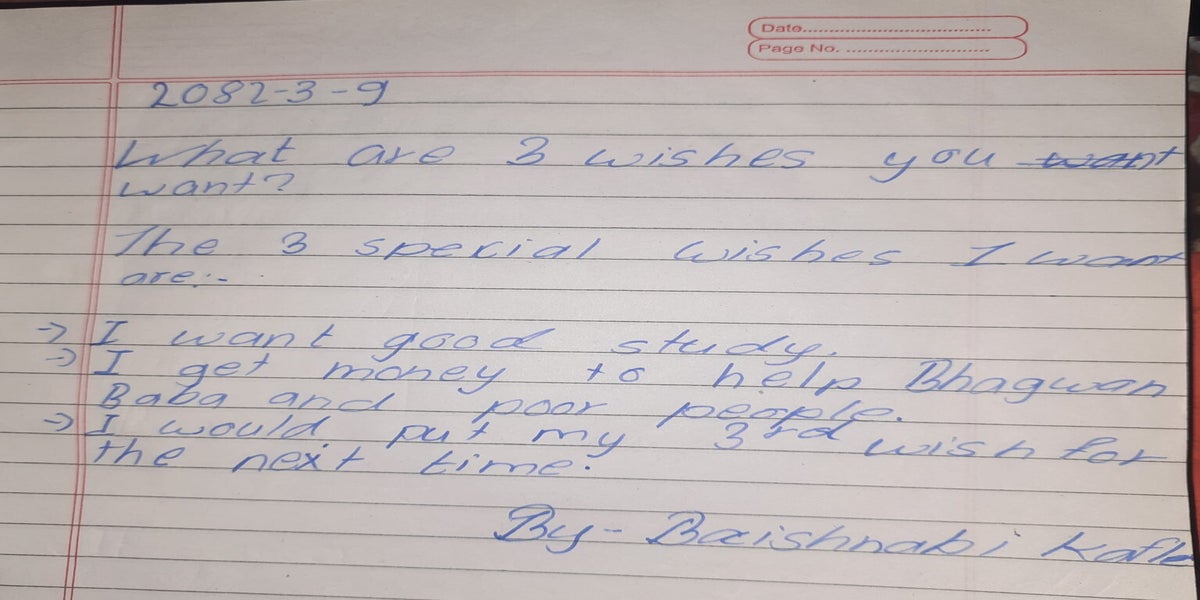 Date..............................
Page No. ..............................
2082-3-9
What are 3 wishes you want
want?
The 3 special wishes I want
are:-
→ I want good study.
→ I get money to help Bhagwan
Baba and poor people.
→ I would put my 3rd wish for
the next time.
By- Baishnabi Kafle